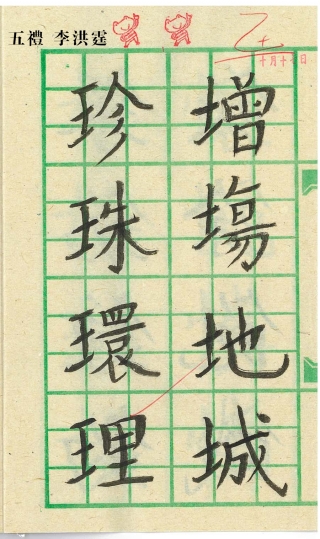 五禮 李洪霆
十月十七日
增塲地城
珍珠環理